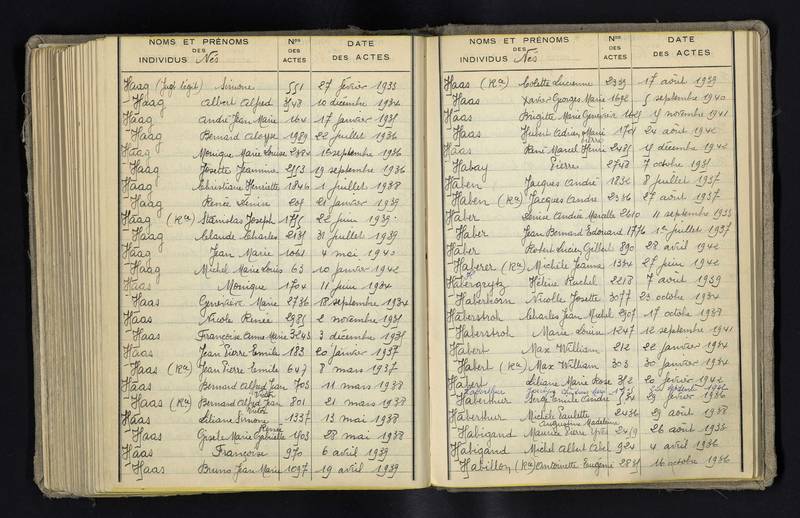 NOMS ET PRÉNOMS
DES
INDIVIDUS Nés
Nos
DES
ACTES
DATE
DES ACTES
Haag Simone 551 27 février 1933
Haag Albert Alfred 3148 10 décembre 1934
Haag André Jean Marie 164 17 janvier 1935
Haag Bernard Aloyse 1989 22 juillet 1936
Haag Monique Marie Louise 2484 16 septembre 1936
Haag Josette Jeannine 2553 19 septembre 1936
Haag Christiane Henriette 1846 1 juillet 1938
Haag Renée 21 janvier 1939
Haag (Ra) Stanislas Joseph 22 juin 1939
Haag Claude Charles 31 juillet 1939
Haag Jean Marie 1061 4 mai 1940
Haag Michel Marie Louis 63 10 janvier 1942
Haas Monique 1704 11 juin 1934
Haas Geneviève Marie 2736 18 septembre 1934
Haas Nicole Renée 2 novembre 1935
Haas Françoise Anne Marie 3243 3 décembre 1935
Haas Jean Pierre Emile 183 20 janvier 1937
Haas (Ra) Jean Pierre Emile 647 8 mars 1937
Haas Bernard Alfred Jean 703 11 mars 1938
Haas (Ra) Bernard Alfred Jean 801 21 mars 1938
Haas Liliane Simone 1337 13 mai 1938
Haas Gisèle Marie 1403 28 mai 1938
Haas Françoise 970 6 avril 1939
Haas Bruno Jean Marie 1097 19 avril 1939
NOMS ET PRÉNOMS
DES
INDIVIDUS Nés
Nos
DES
ACTES
DATE
DES ACTES
Haas (Ra) Colette Lucienne 2359 17 août 1939
Haas Xavier Georges Marie 1692 5 septembre 1940
Haas Brigitte Marie Geneviève novembre 1941
Haas Hubert Adrien Marie 1701 24 août 1942
Haas René Marcel décembre 1942
Habay Pierre 2748 7 octobre 1935
Haben Jacques André 1832 8 juillet 1937
Haben (Ra) Jacques André 2336 27 août 1937
Haber Denise Andrée Marcelle 2610 11 septembre 1933
Haber Jean Bernard Edouard 1776 1er juillet 1937
Haber Robert Lucien Gilbert 890 28 avril 1942
Haberer (Ra) Michèle Jeanne 1334 27 juin 1942
Hélène Rachel 2218 7 août 1939
Haberkorn Nicolle Josette 3077 23 octobre 1934
Haberstroh Charles Jean Michel 2907 17 octobre 1938
Haberstroh Marie Louise 1247 12 septembre 1941
Habert Max William 212 22 janvier 1934
Habert (Ra) Max William 303 30 janvier 1934
Habert Liliane Marie Rose 312 20 février 1942
Haberthur Serge Emile André 534 29 février 1936
Haberthur Michèle Paulette 2436 29 août 1938
Augustin Madeleine
Habigand Maurice Pierre 2419 26 août 1933
Habigand Michel Albert 924 4 avril 1936
Habillon (Ra) Antoinette Eugénie 16 octobre 1936